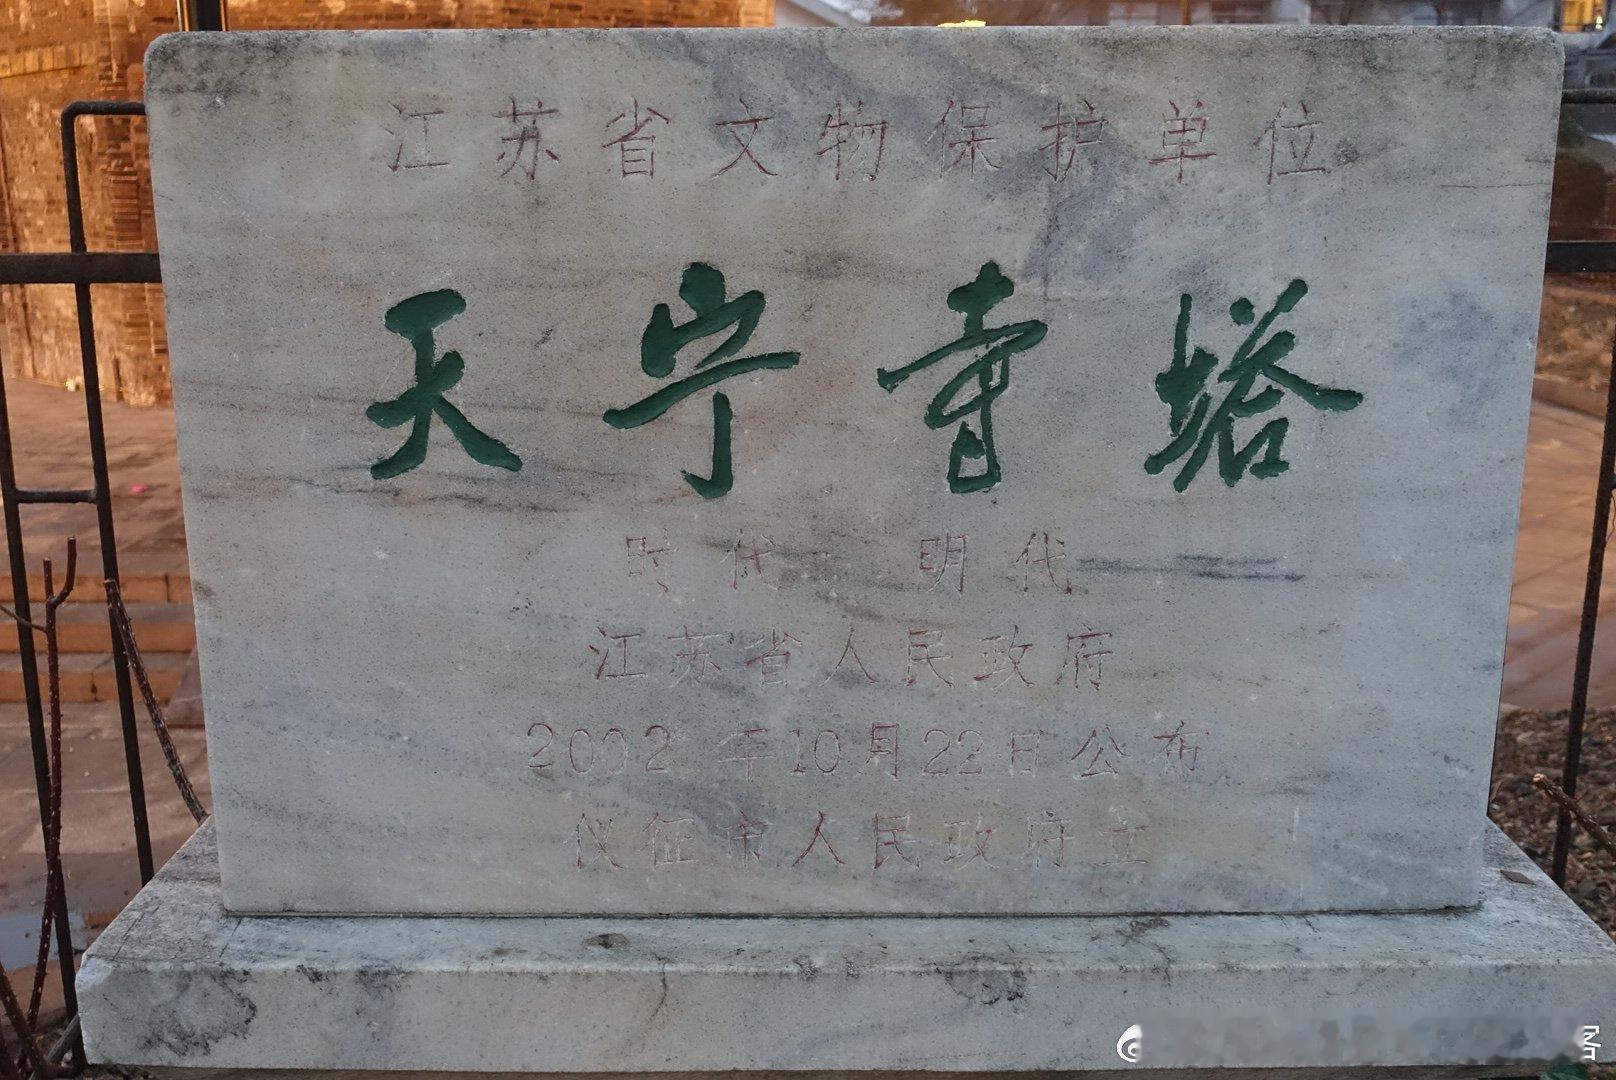 江苏省文物保护单位
天宁寺塔
时代 明代
江苏省人民政府
2002年10月22日公布
仪征市人民政府立